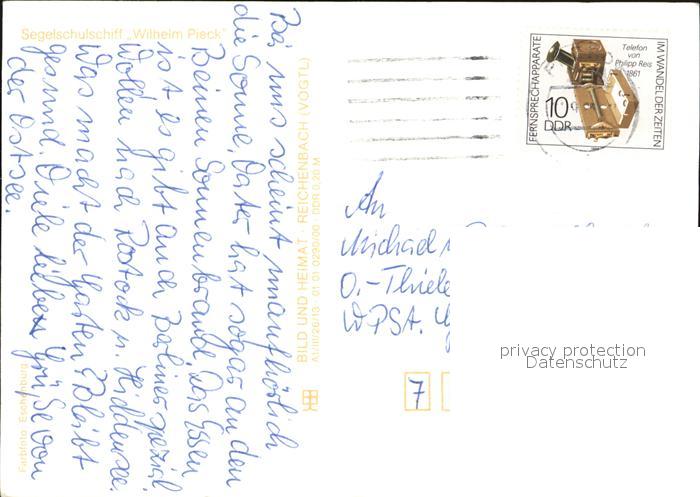 Segelschulschiff „Wilhelm Pieck"
Bei uns scheint unaufhörlich
die Sonne, Vater hat sogar an den
Beinen Sonnenbrand. Das Essen
ist es gibt auch Berliner spezial
Wollen nach Rostock u. Hiddensee.
Was macht der Garten? Bleibt
gesund. Viele liebe Grüße von
der Ostsee.
Farbfoto: Eschenburg
BILD UND HEIMAT · REICHENBACH (VOGTL)
A1/III/26/13 · 01 01 0290/00 · DDR 0,20 M
FERNSPRECHAPPARATE
IM WANDEL DER ZEITEN
Telefon
von
Philipp Reis
1861
10
DDR
An
Michael
O.-Thiele
WPSA.
7
privacy protection
Datenschutz